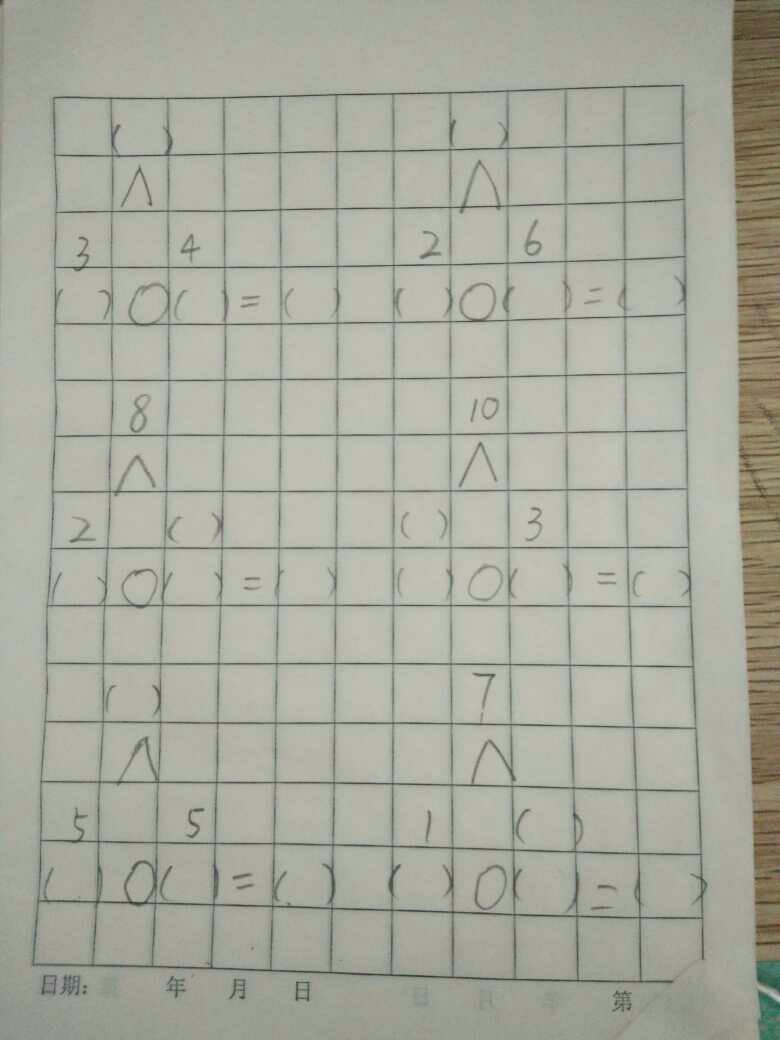 ( ) ( )
∧ ∧
3 4 2 6
( )○( )=( ) ( )○( )=( )
8 10
∧ ∧
2 ( ) ( ) 3
( )○( )=( ) ( )○( )=( )
( ) 7
∧ ∧
5 5 1 ( )
( )○( )=( ) ( )○( )=( )
日期: 年 月 日 第